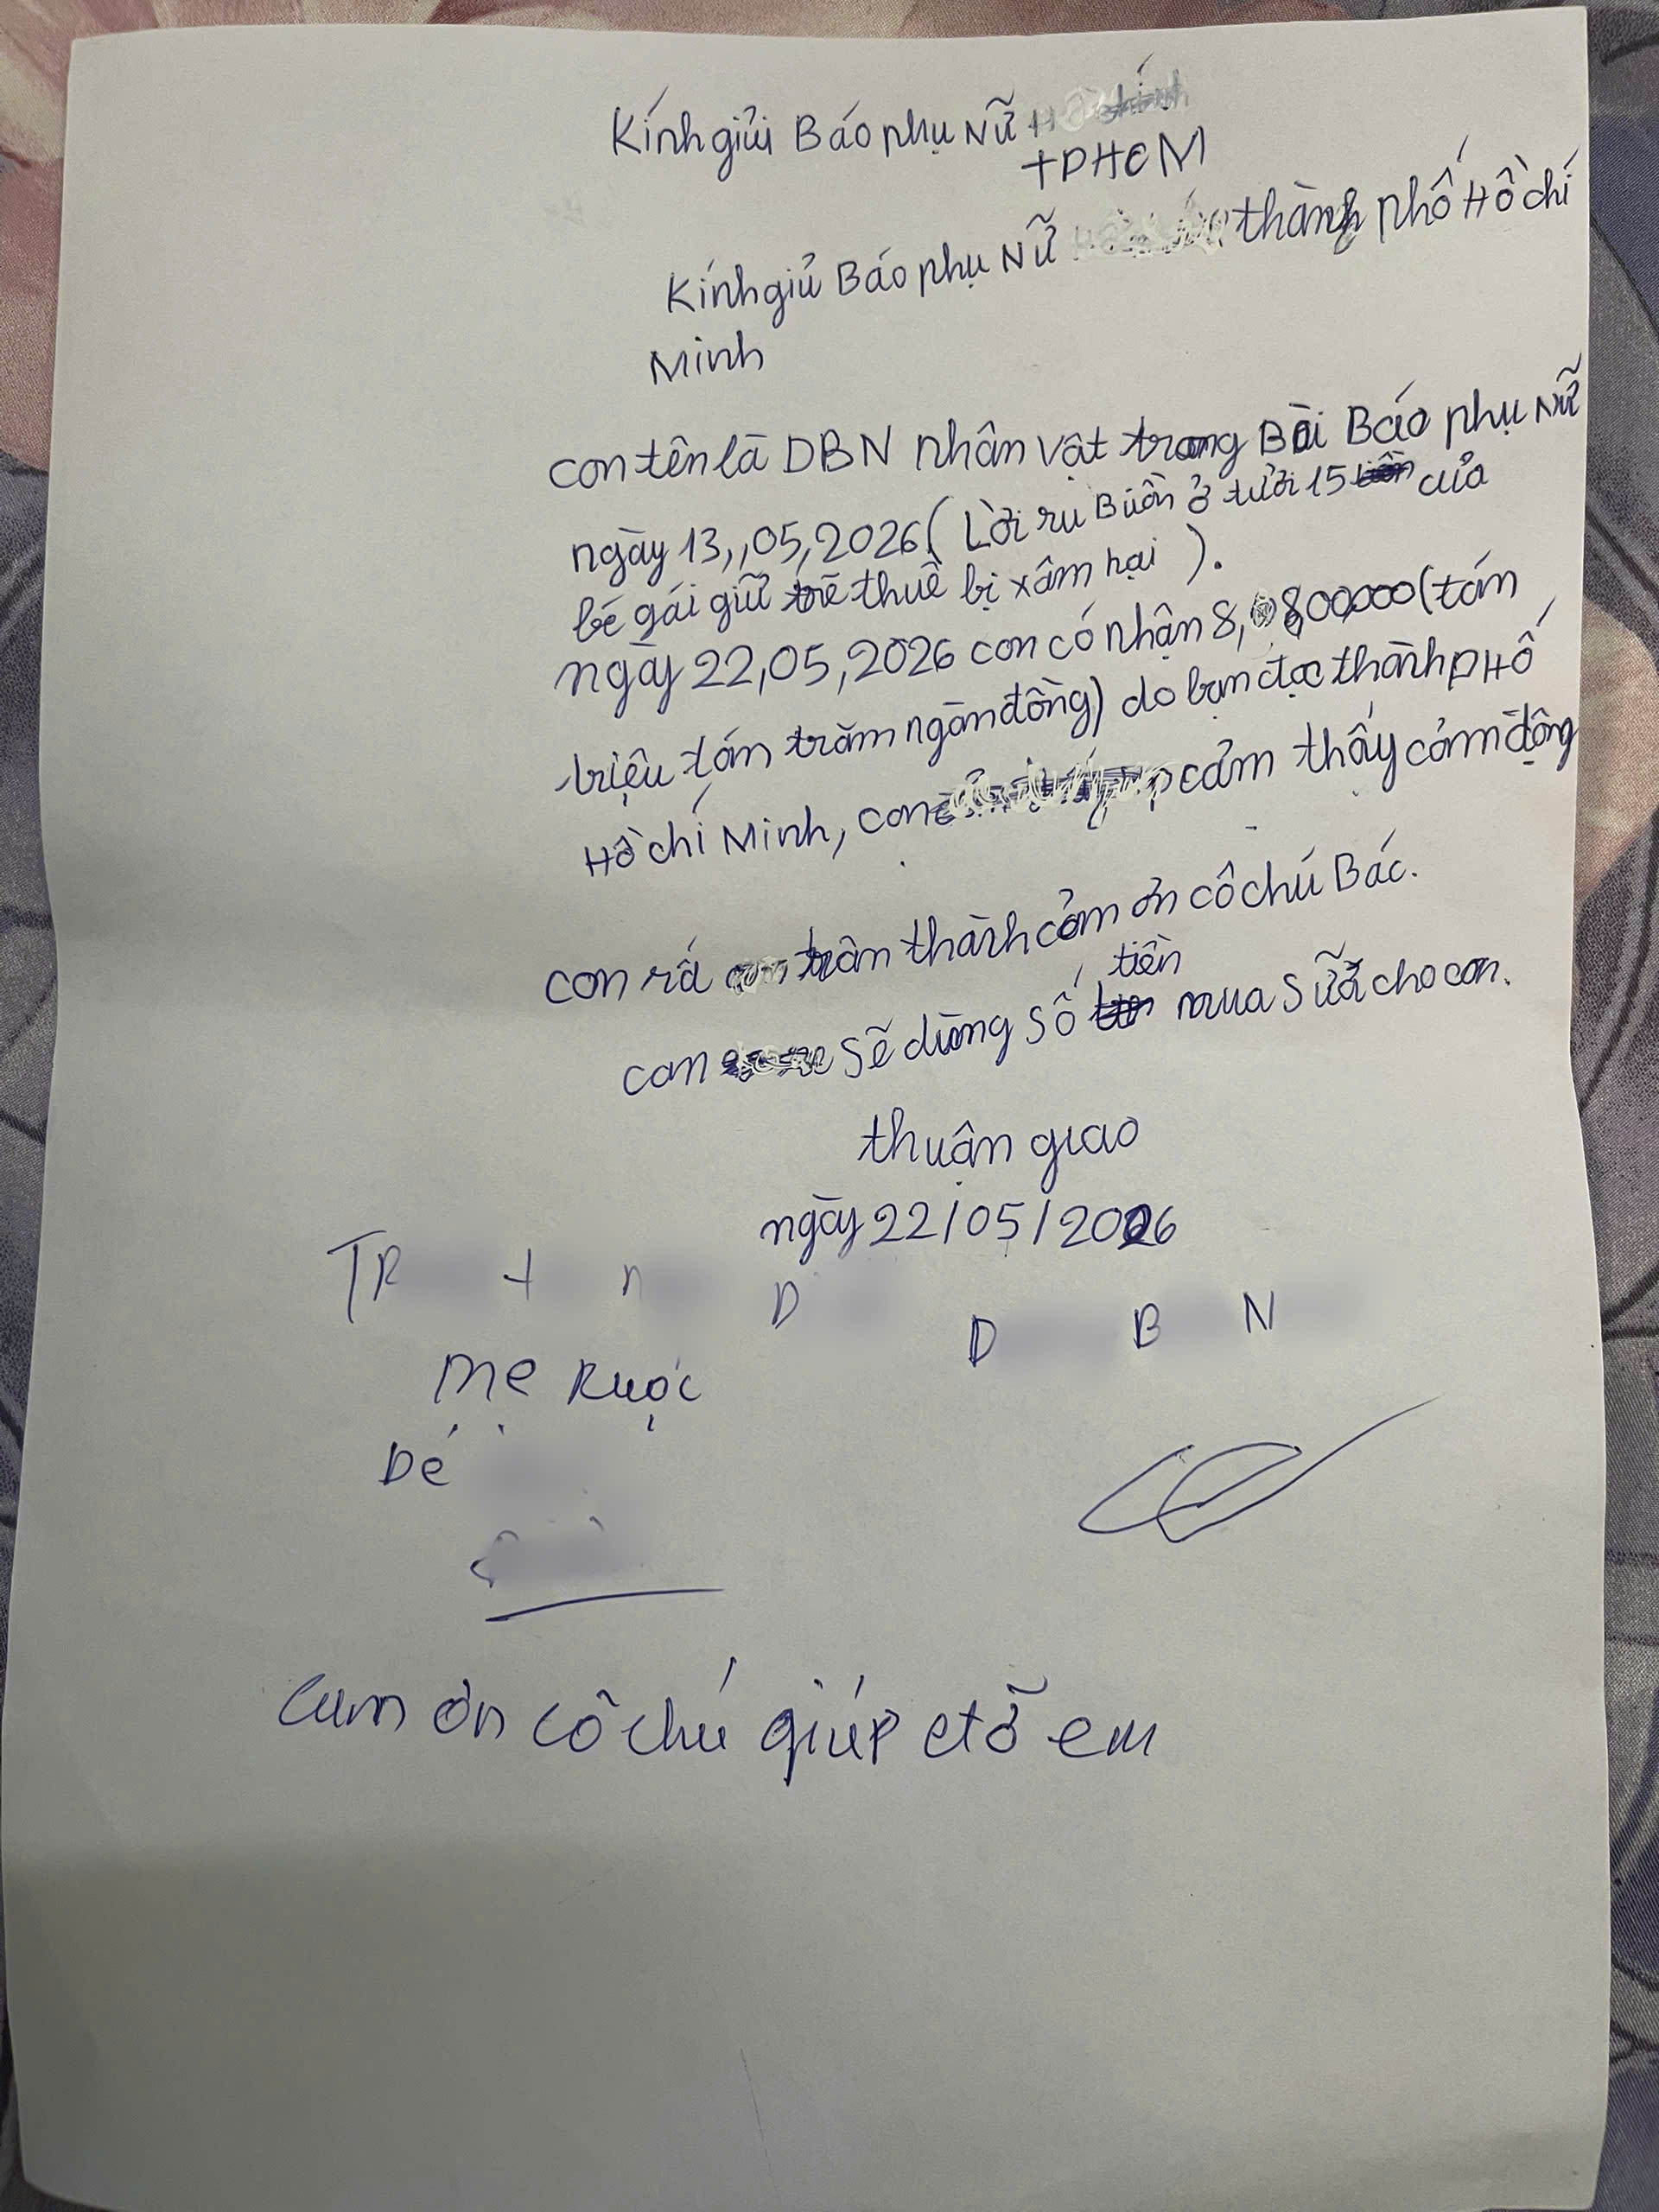 Kính giửi Báo phụ Nữ
TPHCM
Kính giử Báo phụ Nữ thành phố Hồ chí
Minh
con tên là DBN nhân vật trong Bài Báo phụ Nữ
ngày 13,,05,2026 ( Lời ru Buồn ở tuổi 15 của
bé gái giữ trẽ thuê bị xâm hại ).
ngày 22,05,2026 con có nhận 8,800,000 (tám
triệu tám trăm ngàn đồng) do bạn đọc thành PHố
Hồ chí Minh, con cảm thấy cảm động
con rấ trân thành cảm ơn cô chú Bác.
tiền
con sẽ dùng số mua sữa cho con.
thuận giao
ngày 22/05/2026
TR t n D
D B N
Mẹ Ruột
Bé
Cảm ơn cô chú giúp đỡ em